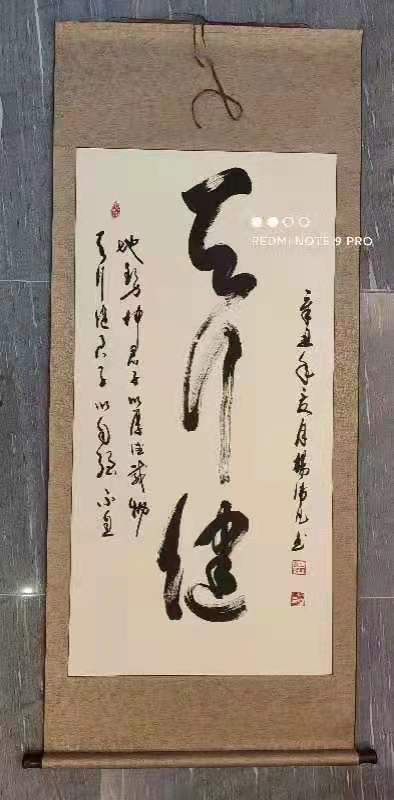 天行健
天行健君子以自强不息
地势坤君子以厚德载物
辛丑年亥月杨书
REDMI NOTE 9 PRO